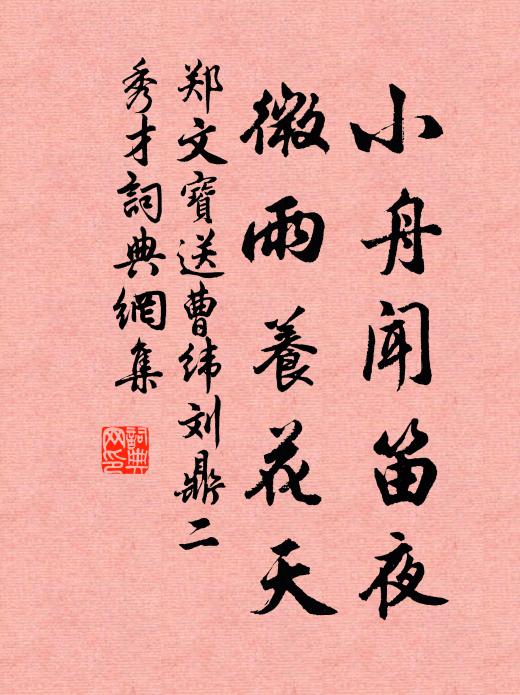 小舟闻笛夜
微雨養花天
郑文寶送曹纬刘鼎二
秀才詞典網集
詞典
网印